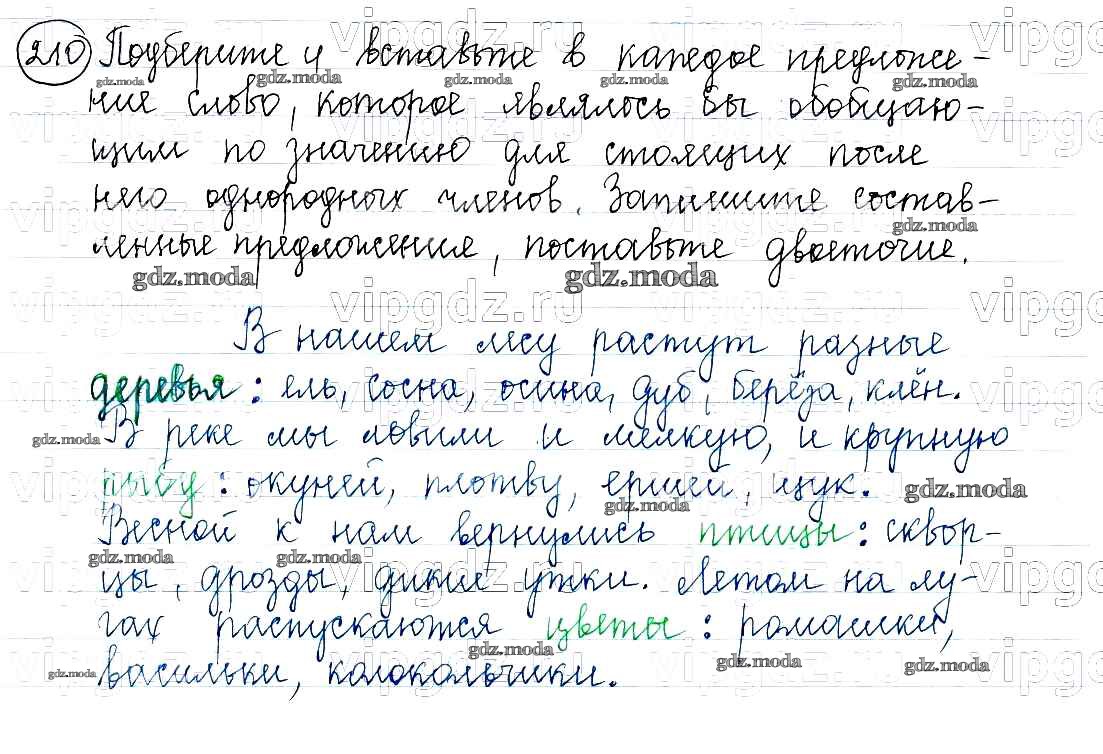 210 Подберите и вставьте в каждое предложе-
ние слово, которое являлось бы обобщаю-
щим по значению для стоящих после
него однородных членов. Запишите состав-
ленные предложение, поставьте двоеточие.
В нашем лесу растут разные
деревья: ель, сосна, осина, дуб, берёза, клён.
В реке мы ловили и мелкую, и крупную
рыбу: окуней, плотву, ершей, щук.
Весной к нам вернулись птицы: сквор-
цы, дрозды, дикие утки. Летом на лу-
гах распускаются цветы: ромашки,
васильки, колокольчики.